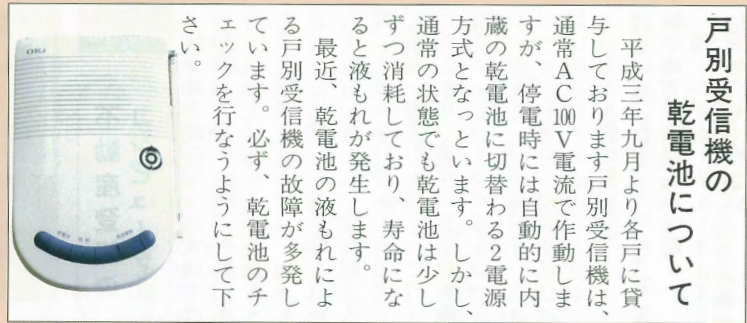 戸別受信機の
乾電池について
平成三年九月より各戸に貸
与しております戸別受信機は、
通常AC100V電流で作動しま
すが、停電時には自動的に内
蔵の乾電池に切替わる2電源
方式となっています。しかし、
通常の状態でも乾電池は少し
ずつ消耗しており、寿命にな
ると液もれが発生します。
最近、乾電池の液もれによ
る戸別受信機の故障が多発し
ています。必ず、乾電池のチ
ェックを行なうようにして下
さい。
OKI